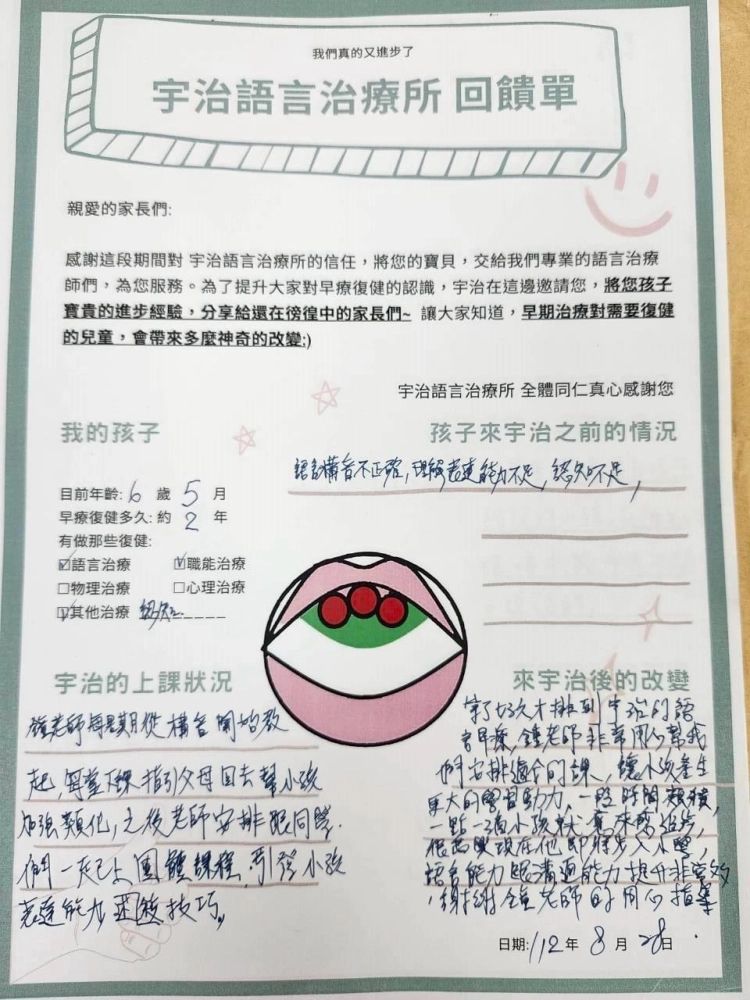 我們真的又進步了
宇治語言治療所 回饋單
親愛的家長們:
感謝這段期間對 宇治語言治療所的信任，將您的寶貝，交給我們專業的語言治療
師們，為您服務。為了提升大家對早療復健的認識，宇治在這邊邀請您，將您孩子
寶貴的進步經驗，分享給還在徬徨中的家長們~ 讓大家知道，早期治療對需要復健
的兒童，會帶來多麼神奇的改變:)
宇治語言治療所 全體同仁真心感謝您
我的孩子
目前年齡: 6 歲 5 月
早療復健多久: 約 2 年
有做那些復健:
☑語言治療 ☑職能治療
□物理治療 □心理治療
☑其他治療 認知
孩子來宇治之前的情況
語言構音不正確，理解表達能力不足，認知不足，
宇治的上課狀況
鐘老師每星期從構音開始教
起，每堂下課指引父母回去幫小孩
加強類化，之後老師安排跟同學
們一起上團體課程，引發小孩
表達能力 技巧。
來宇治後的改變
等了好久才排到宇治的語
言早療，鐘老師非常用心幫我
們安排適合的課，讓小孩產生
更大的學習動力，一段時間累積，
一點一滴小孩 進步，
現在他即將步入小學，
語言能力跟溝通能力提升非常多
，謝謝鐘老師的用心指導
日期: 112 年 8 月 28 日